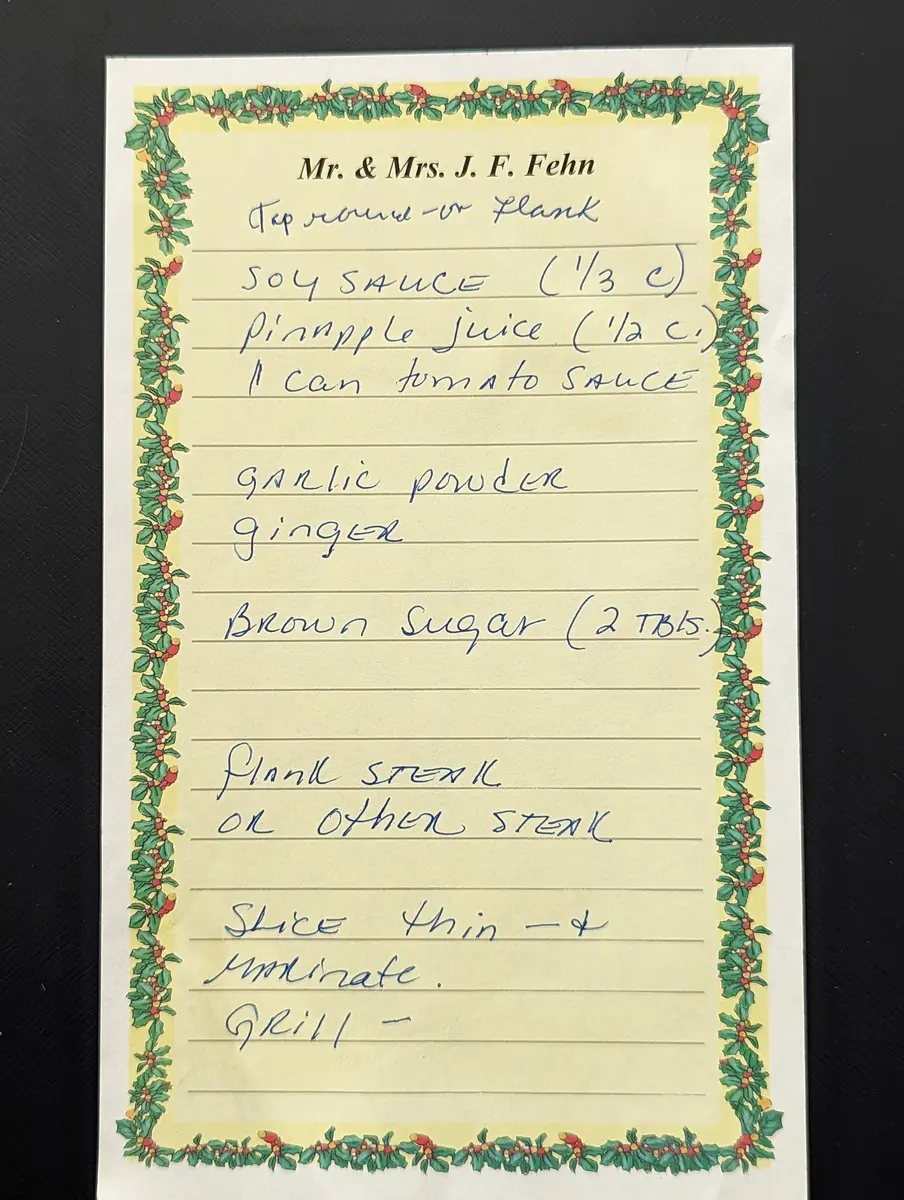 Mr. & Mrs. J. F. Fehn
Top round - or Flank
SOY SAUCE (1/3 C)
Pinapple juice (1/2 C.)
1 can tomato SAUCE
GARLIC POWDER
ginger
BROWN Sugar (2 TBLS.)
flank STEAK
OR OTHER STEAK
SLICE thin - &
MARinate.
GRill -